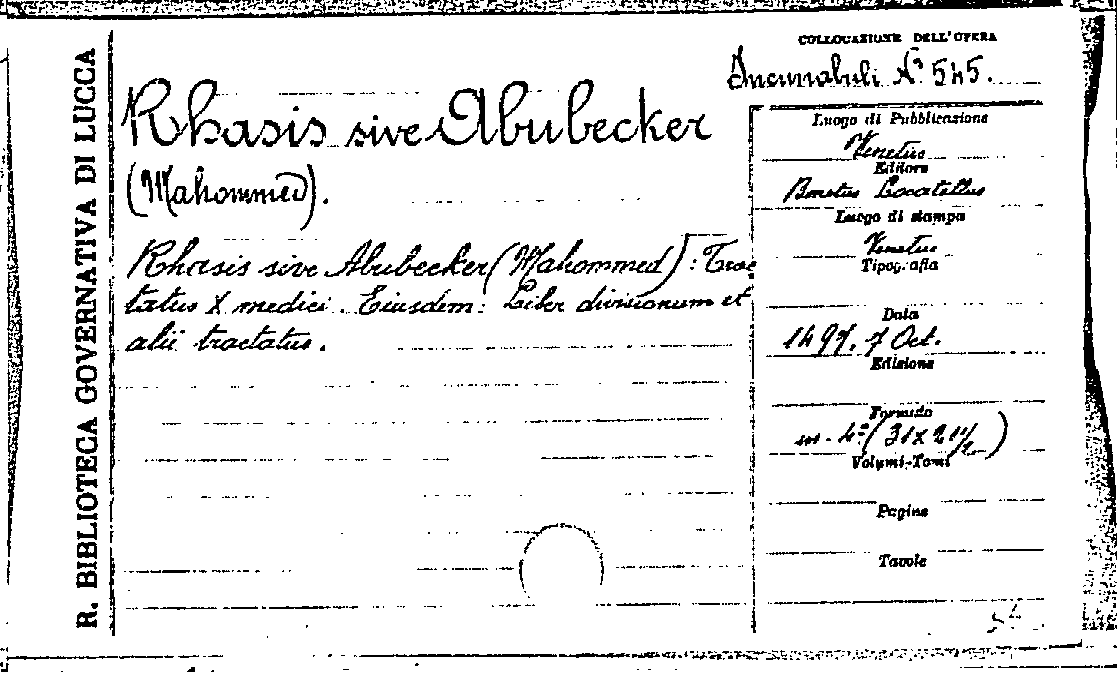 R. BIBLIOTECA GOVERNATIVA DI LUCCA
COLLOCAZIONE DELL'OPERA
Incunabuli N.° 545.
Rhasis sive Abubecker
(Mahommed).
Rhasis sive Abubecker (Mahommed): Trac
tatus X medici. Eiusdem: Liber divisionum et
alii tractatus.
Luogo di Pubblicazione
Venetus
Editore
Bonetus Locatellus
Luogo di stampa
Venetus
Tipografia
Data
1497. 7 Oct.
Edizione
Formato
in-4° (31 x 21 1/2)
Volumi-Tomi
Pagine
Tavole